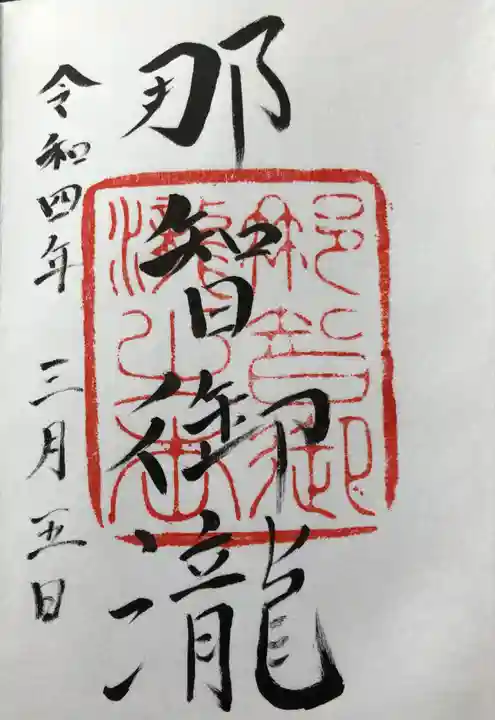 那智御瀧
令和四年 三月五日